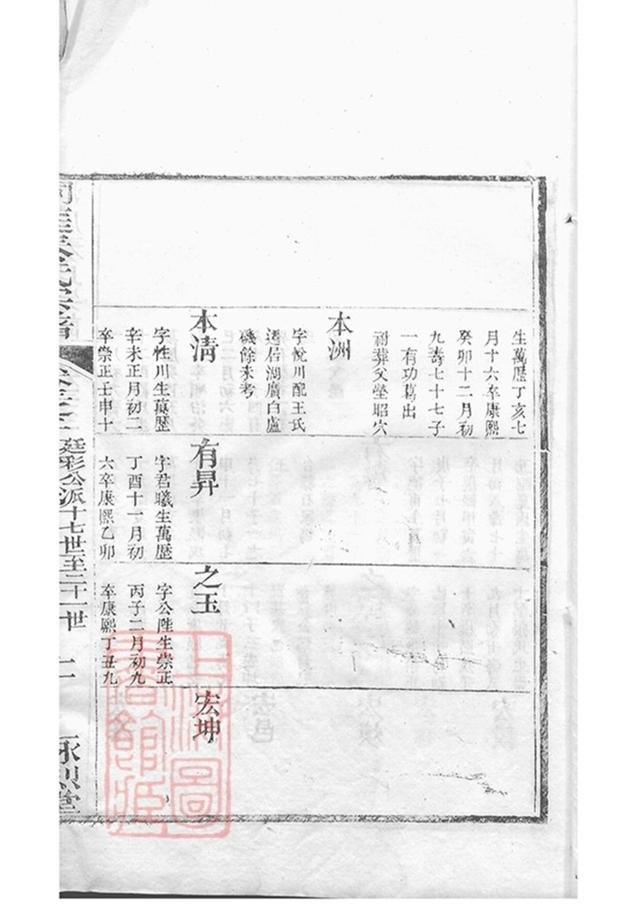 生萬歷丁亥七
月十六卒康熙
癸卯十二月初
九壽七十七子
一有功葛出
祔葬父塋昭穴
本洲
字悅川配王氏
遷居湖廣白盧
磯餘未考
本清
字性川生萬歷
辛未正月初二
卒崇正壬申十
有昇
字君曦生萬歷
丁酉十一月初
六卒康熙乙卯
之玉
字公陛生崇正
丙子二月初九
卒康熙丁丑九
宏坤
氏宗譜
廷彩公派十七世至二十一世
二